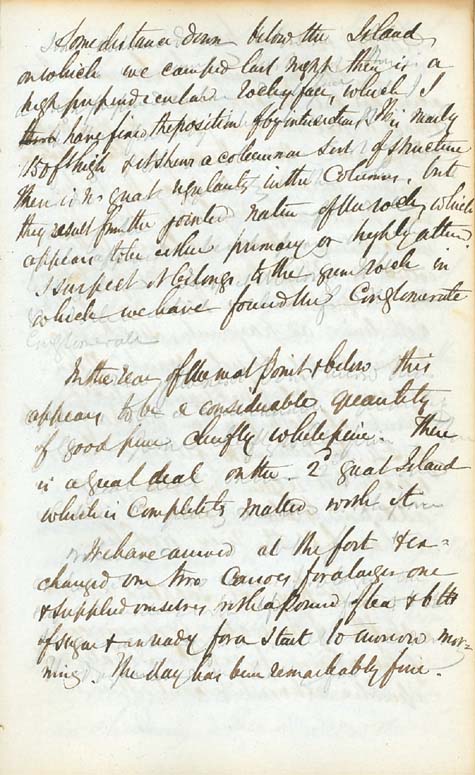 Some distance down below the Island
on which we camped last night there is a
high perpendicular rocky face, which I
have fixed the position of by intersection. It is nearly
150 ft high & it shews a columnar sort of structure
There is no great regularity in the Columns, but
they result from the jointed nature of the rock, which
appears to be either primary or highly altered.
I suspect it belongs to the green rock in
which we have found the Conglomerate
In the rear of the mat Point & below this
appears to be a considerable quantity
of good pine chiefly white pine. There
is a great deal on the 2d great Island
which is Completely matted with it
We have arrived at the fort & ex=
changed our two Canoes for a larger one
& supplied ourselves with a Pound of tea & 6 lbs
of sugar & are ready for a start to morrow mor=
ning. The day has been remarkably fine.